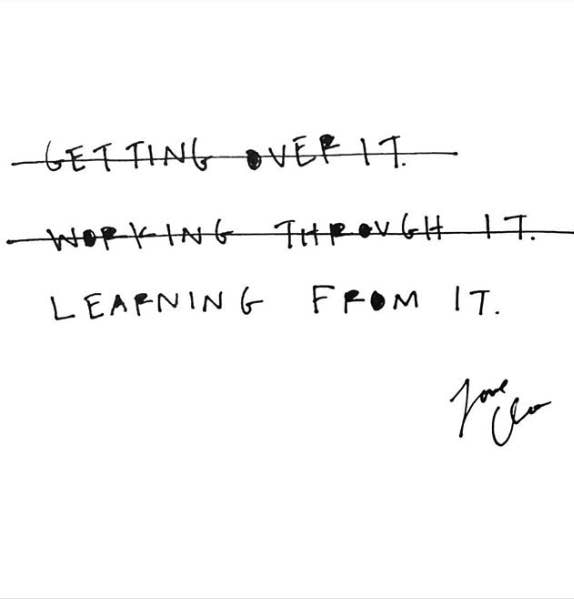 GETTING OVER IT.
WORKING THROUGH IT.
LEARNING FROM IT.
Love